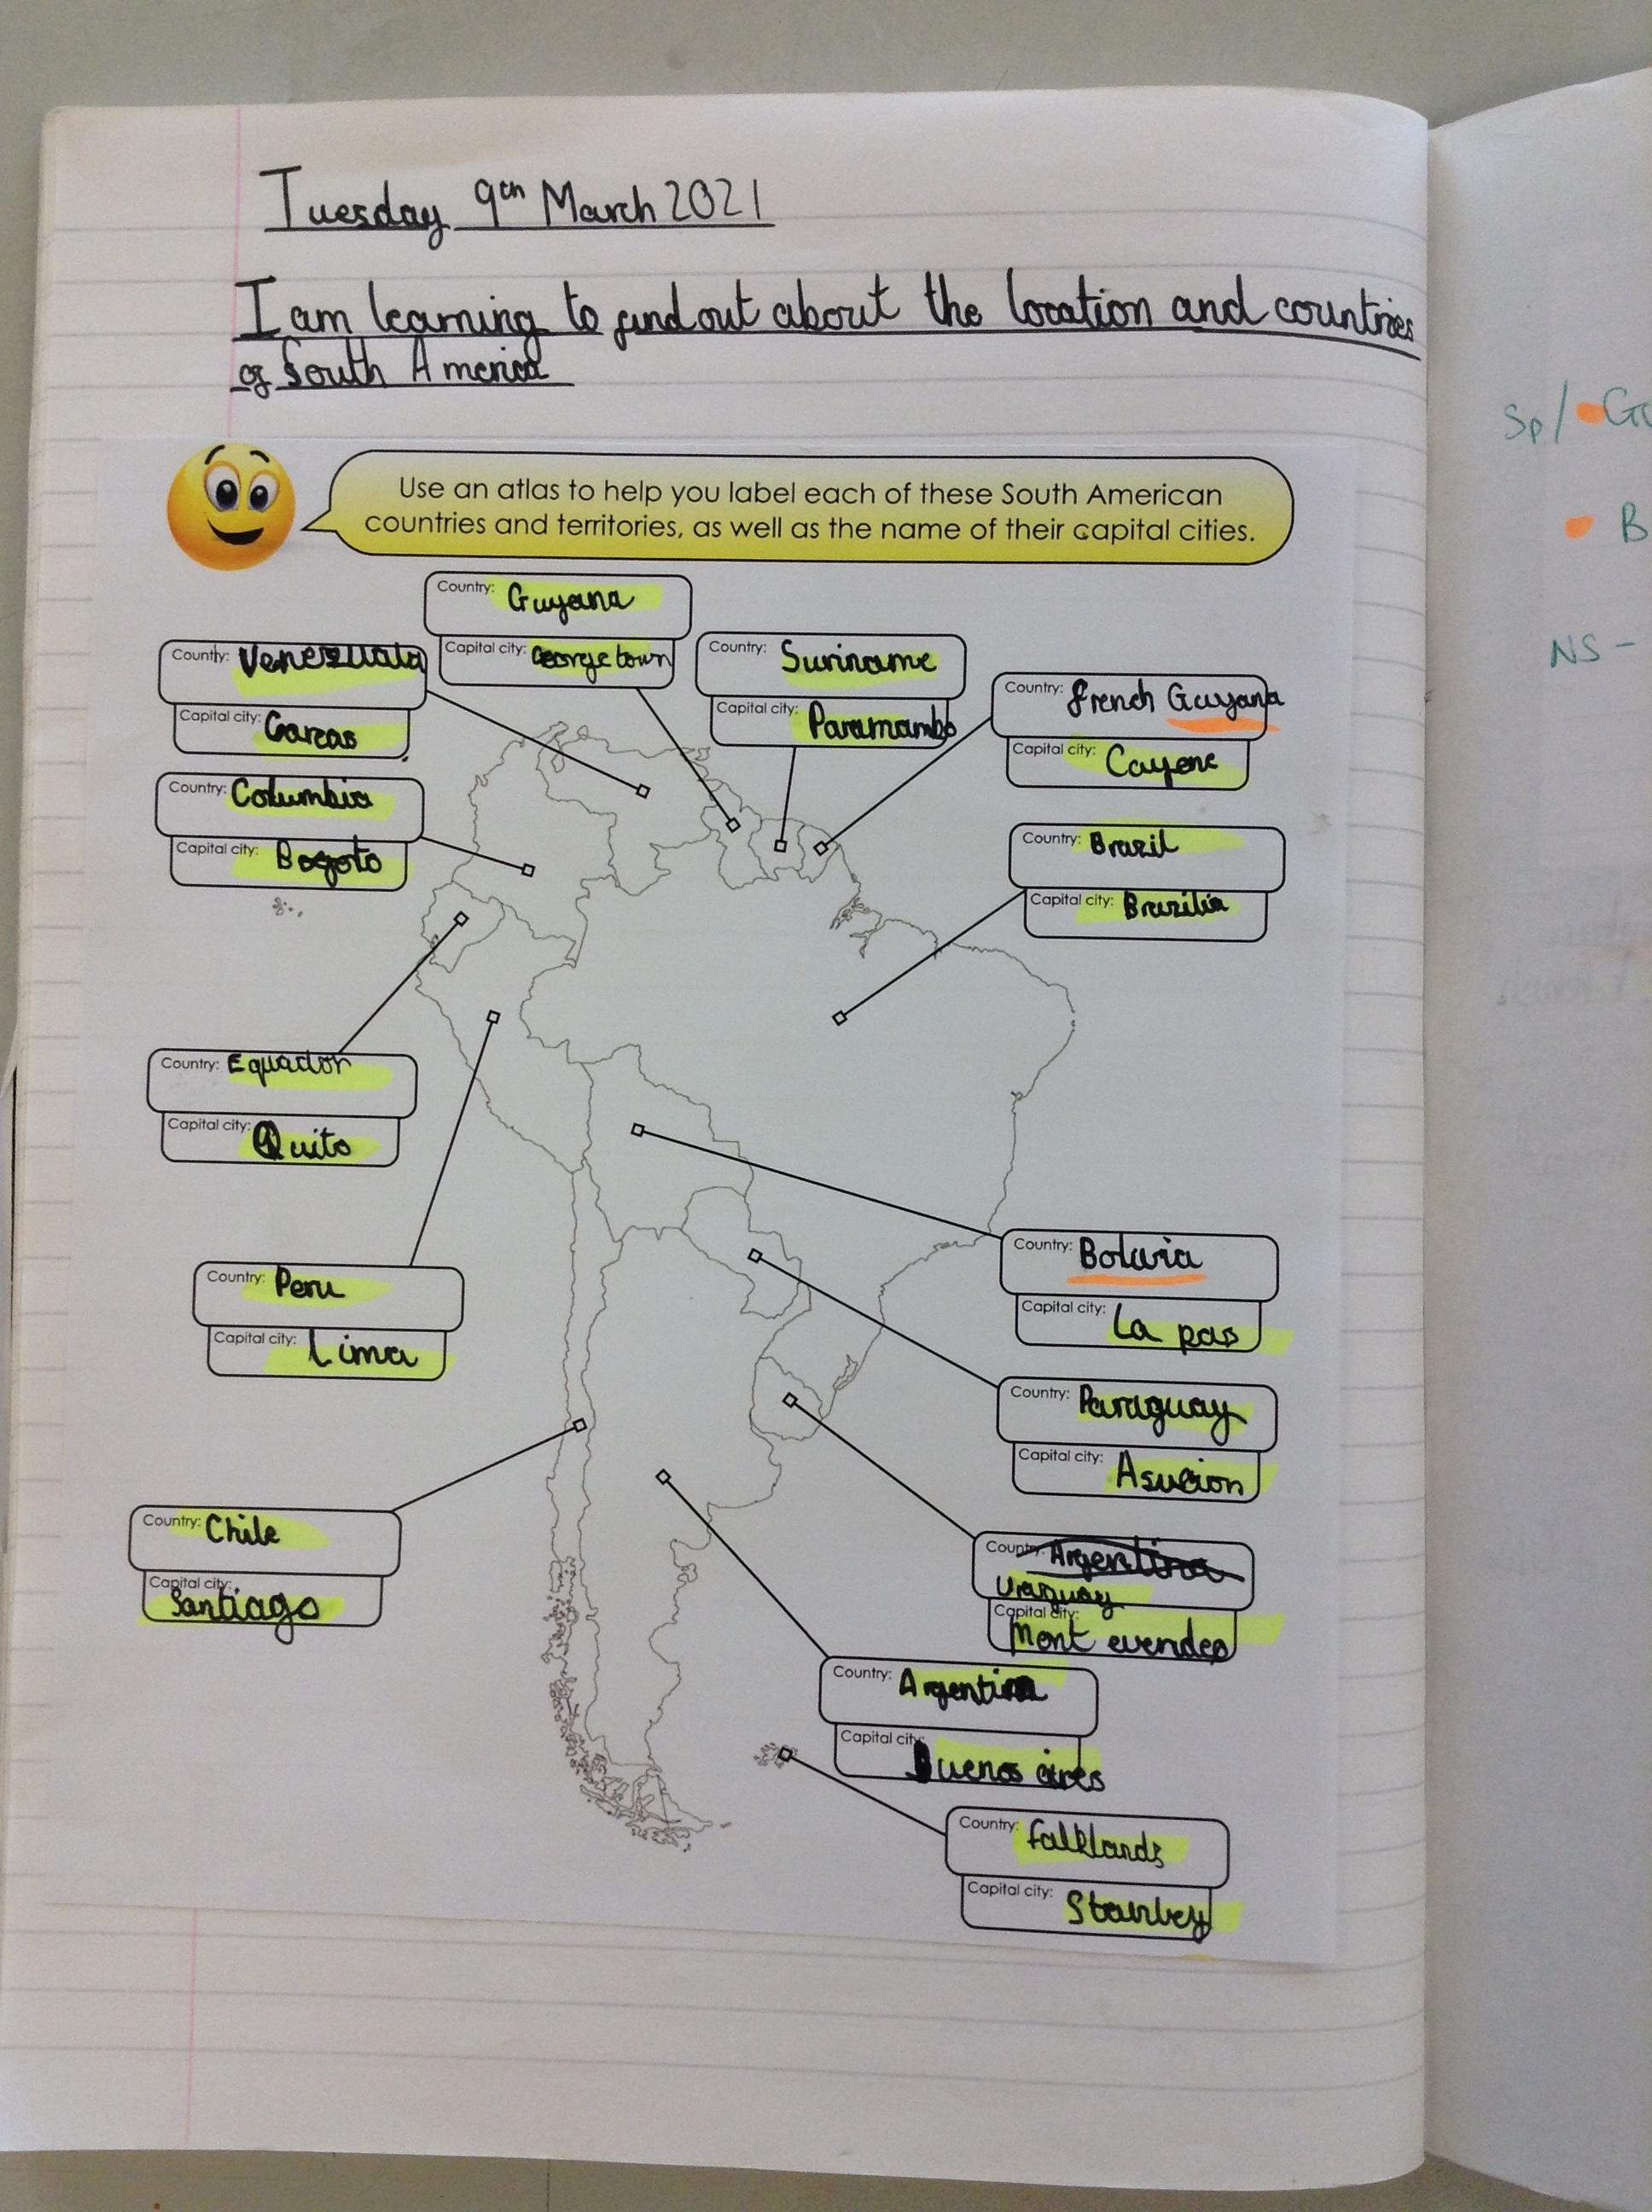 Tuesday 9th March 2021
I am learning to find out about the location and countries
of South America
Use an atlas to help you label each of these South American
countries and territories, as well as the name of their capital cities.
Country: Guyana
Capital city: Georgetown
Country: Venezuala
Capital city: Carcas
Country: Suriname
Capital city: Paramambo
Country: French Guyana
Capital city: Cayene
Country: Columbia
Capital city: Bogoto
Country: Brazil
Capital city: Brazilia
Country: Equador
Capital city: Quito
Country: Peru
Capital city: Lima
Country: Bolivia
Capital city: La pas
Country: Paraguay
Capital city: Asucion
Country: Chile
Capital city: Santiago
Country: Argentina
Uraguay
Capital city:
Mont evendeo
Country: Argentina
Capital city:
Buenos aires
Country: Falklands
Capital city: Stanley
Sp/
B
NS -